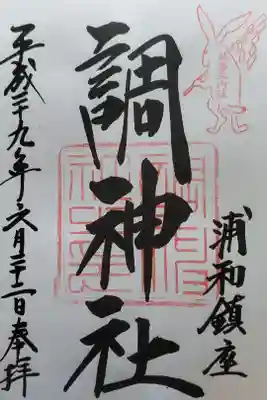 浦和鎮座
調神社
平成二十九年六月二十二日奉拝